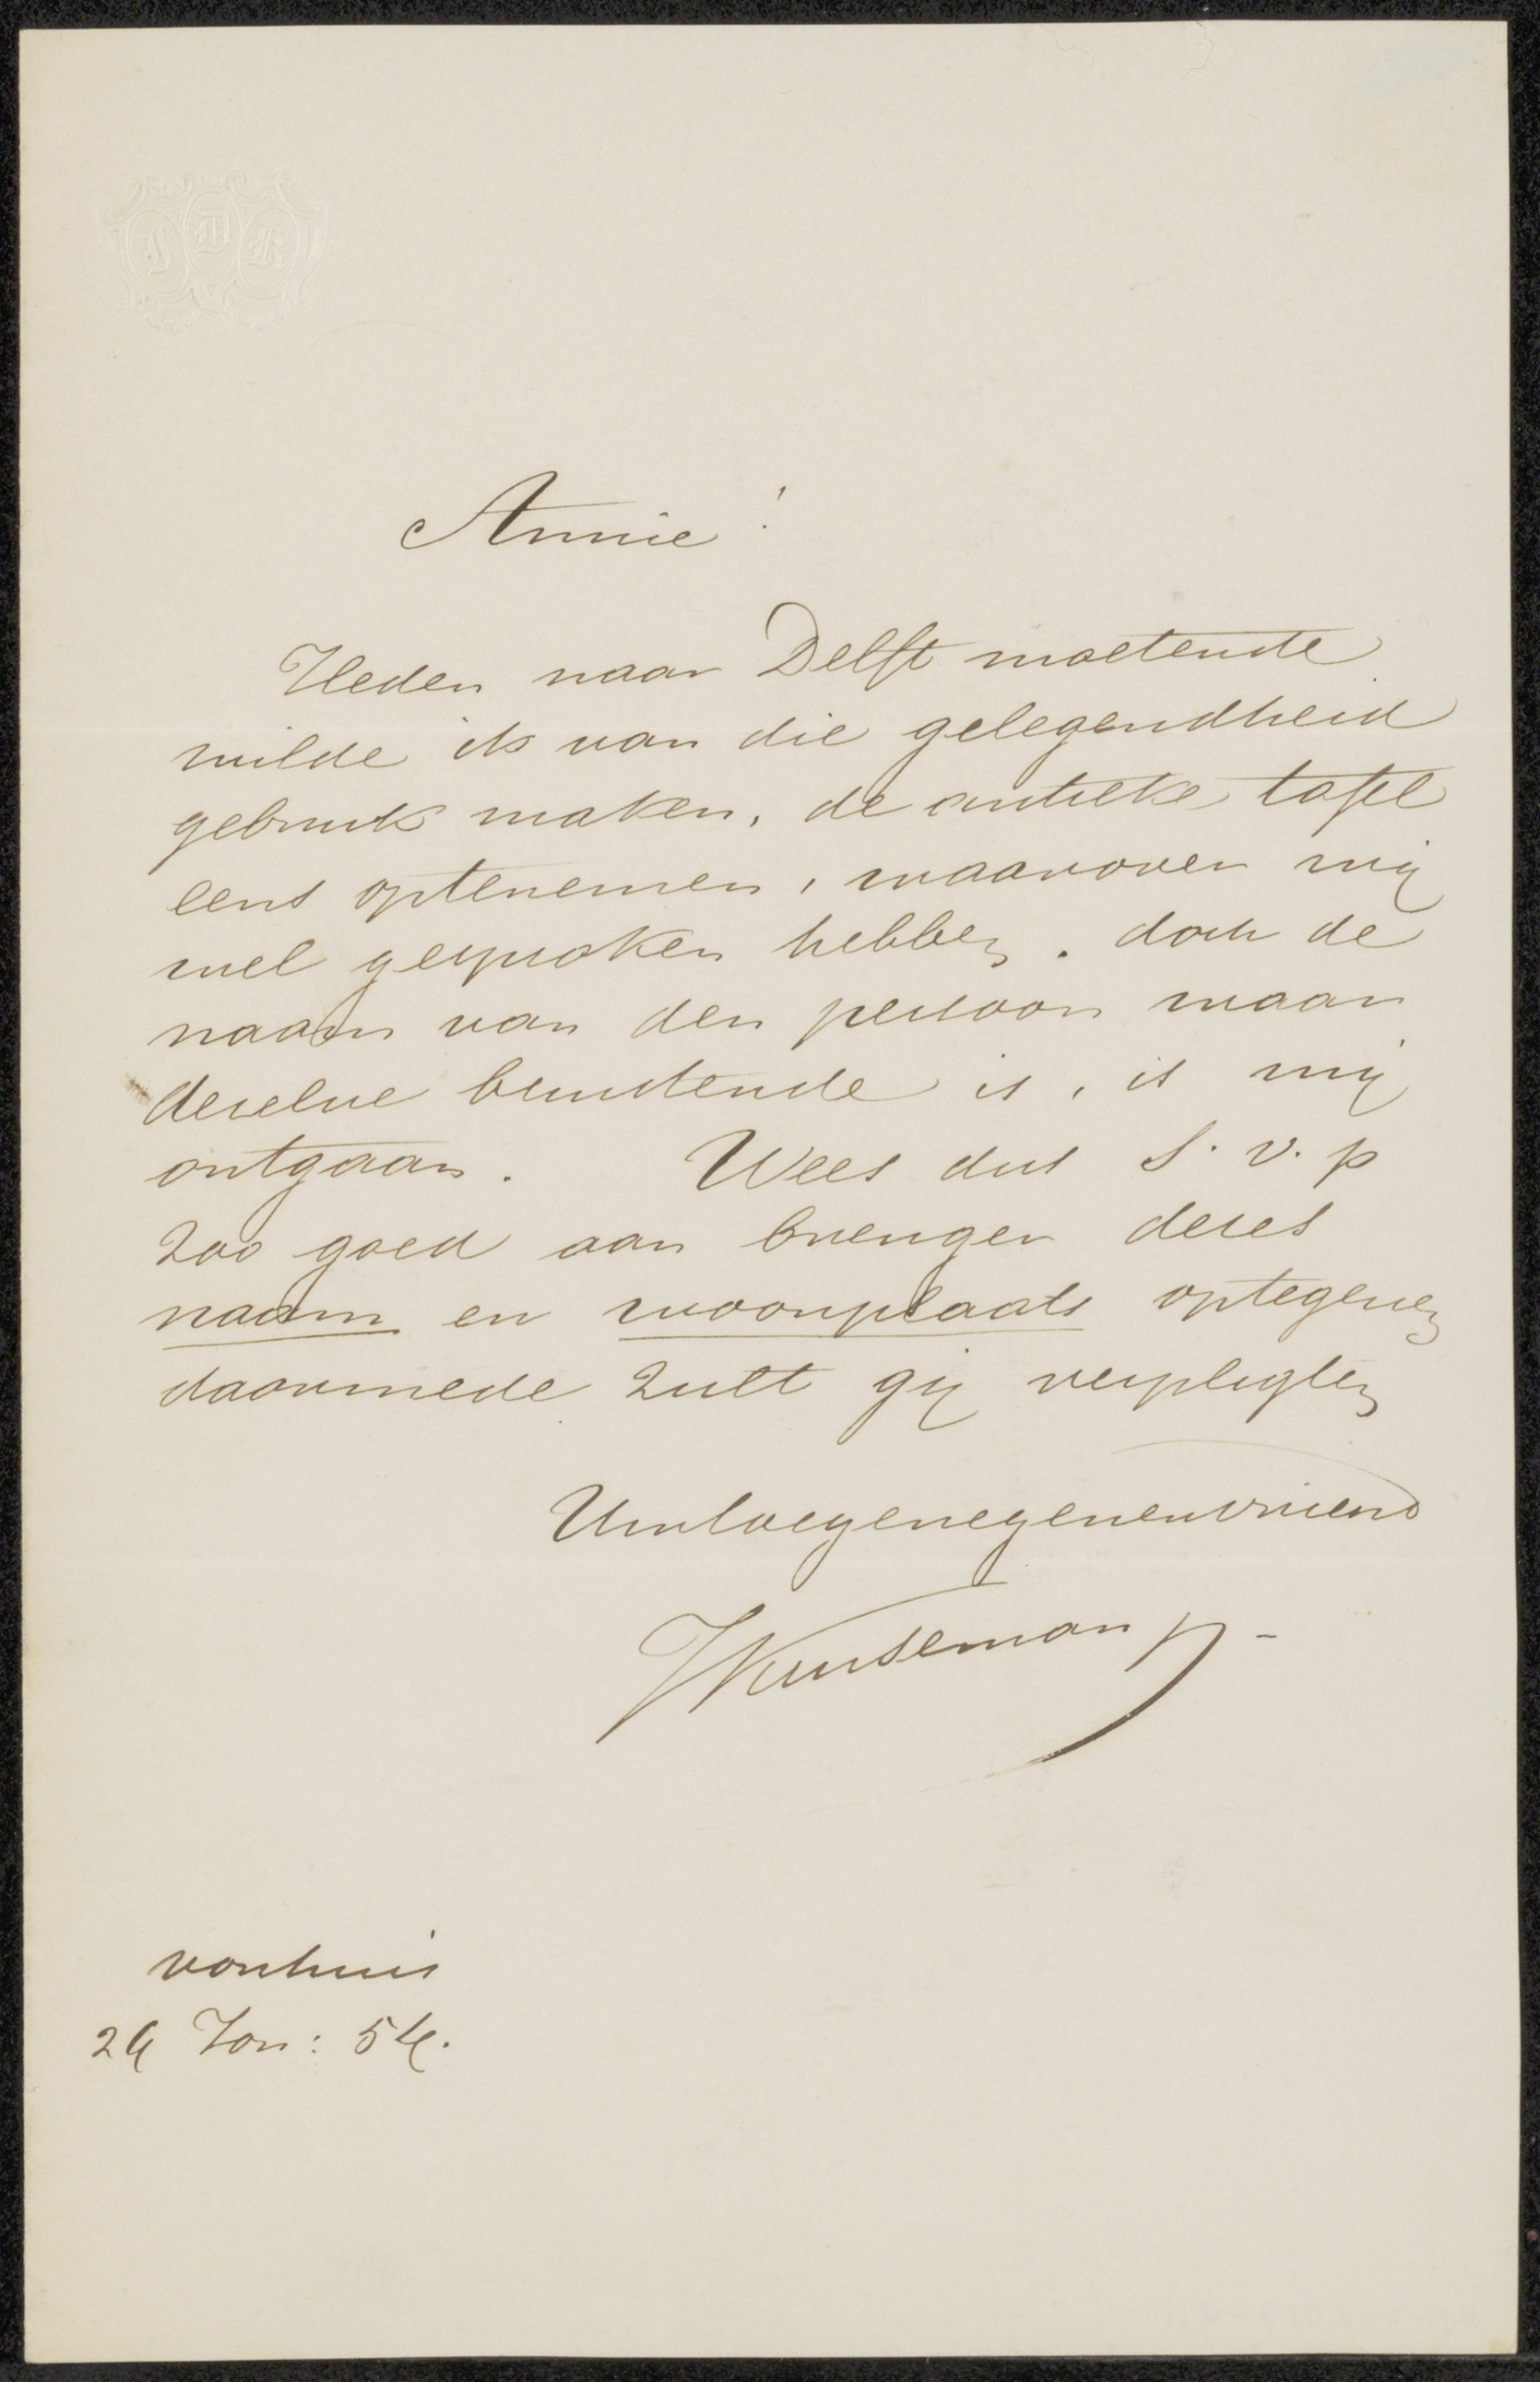 J D K
Amice!
Heden naar Delft moetende
wilde ik van die gelegendheid
gebruik maken, de antieke tafel
eens optenemen, waarover wij
wel gesproken hebben. doch de
naam van den persoon waar
deselve berustende is, is mij
ontgaan. Wees dus S. v. p
zoo goed aan brenger deses
naam en woonplaats optegeven
daarmede zult gij verpligten
Uw toegenegenen vriend
JKruseman
van huis
24 Jan: 54.